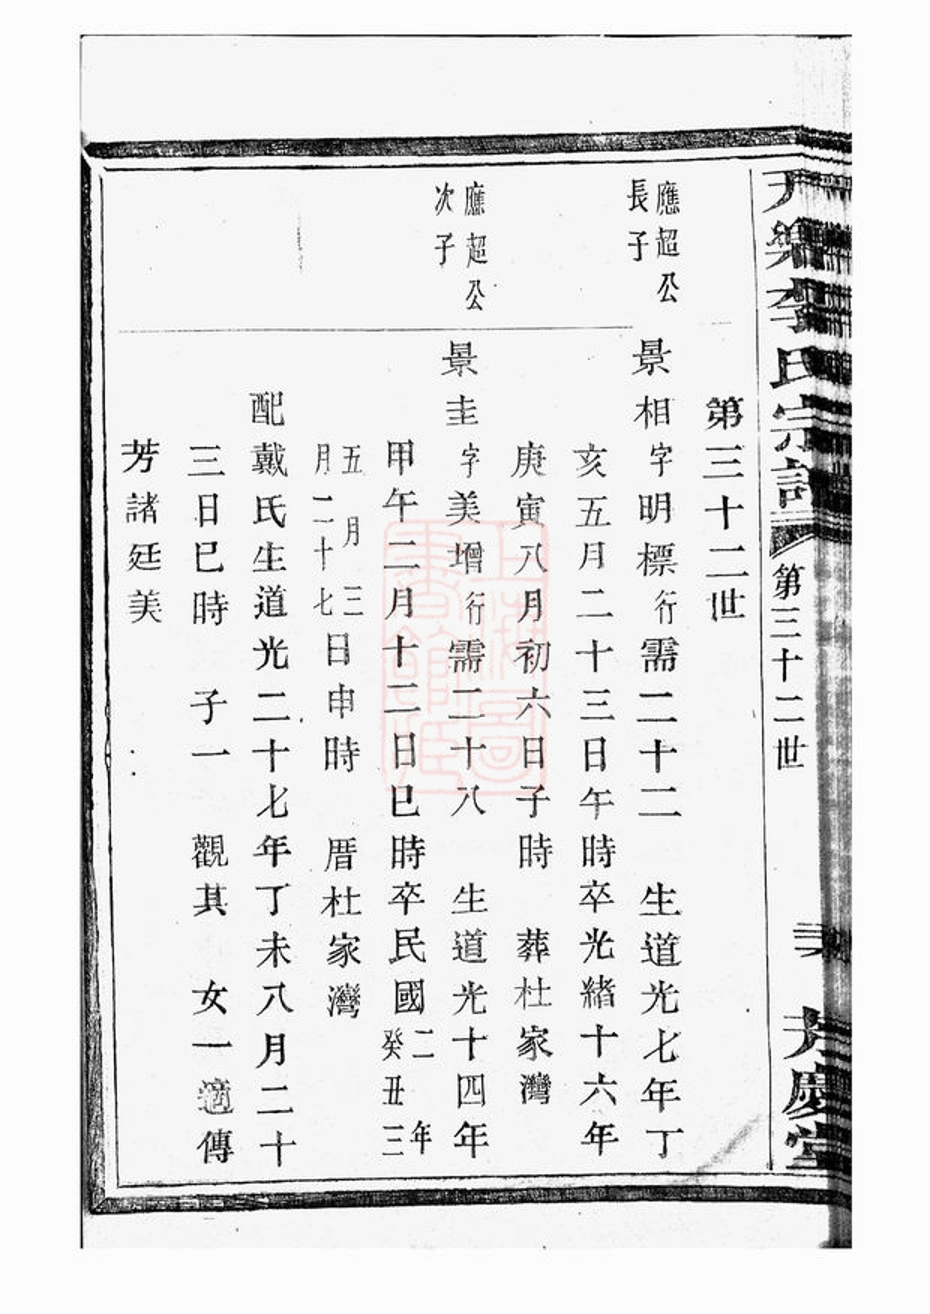 氏宗譜 第三十二世 慶堂
第三十二世
應超公
長子
景相字明標行需二十二 生道光七年丁
亥五月二十三日午時卒光緒十六年
庚寅八月初六日子時 葬杜家灣
應超公
次子
景圭字美增行需二十八 生道光十四年
甲午二月十二日巳時卒民國二年癸丑三
五月三月二十七日申時 厝杜家灣
配戴氏生道光二十七年丁未八月二十
三日巳時 子一 觀其 女一適傳
芳諸廷美
上海圖
書館